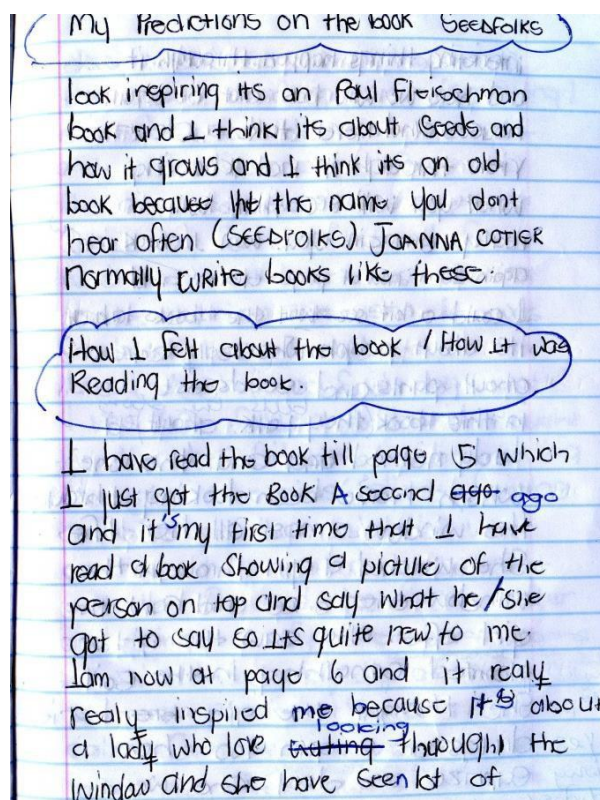 My Predictions on the book SEEDFOLKS
look inspiring its an Paul Fleischman
book and I think its about Seeds and
how it grows and I think its an old
book because the name you dont
hear often (SEEDFOLKS) JOANNA COTIER
normally write books like these.
How I felt about the book / How It was
Reading the book.
I have read the book till page 5 which
I just got the Book A second ago
and it's my first time that I have
read a book Showing a picture of the
person on top and say what he/she
got to say so Its quite new to me.
I am now at page 6 and it realy
realy inspired me because it's about
a lady who love looking throught the
window and she have seen lot of